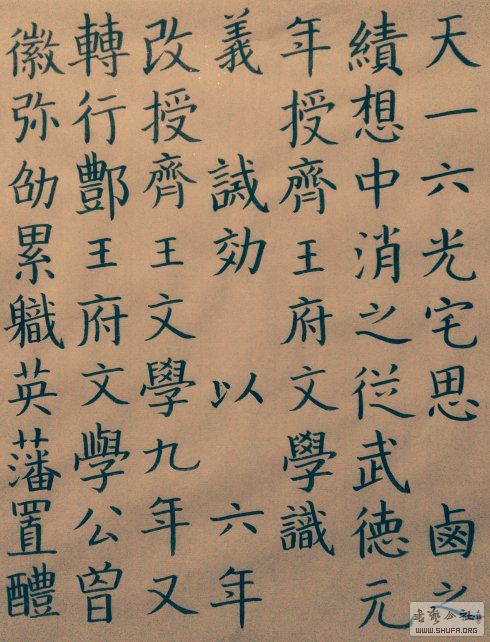 天一六光宅思 鹵之
績想中消之從武德元
年授齊王府文學識
義 誠効 以 六年
改授齊王文學九年又
轉行酆王府文學公曾
徽弥劭累職英藩置醴
WWW.SHUFA.ORG